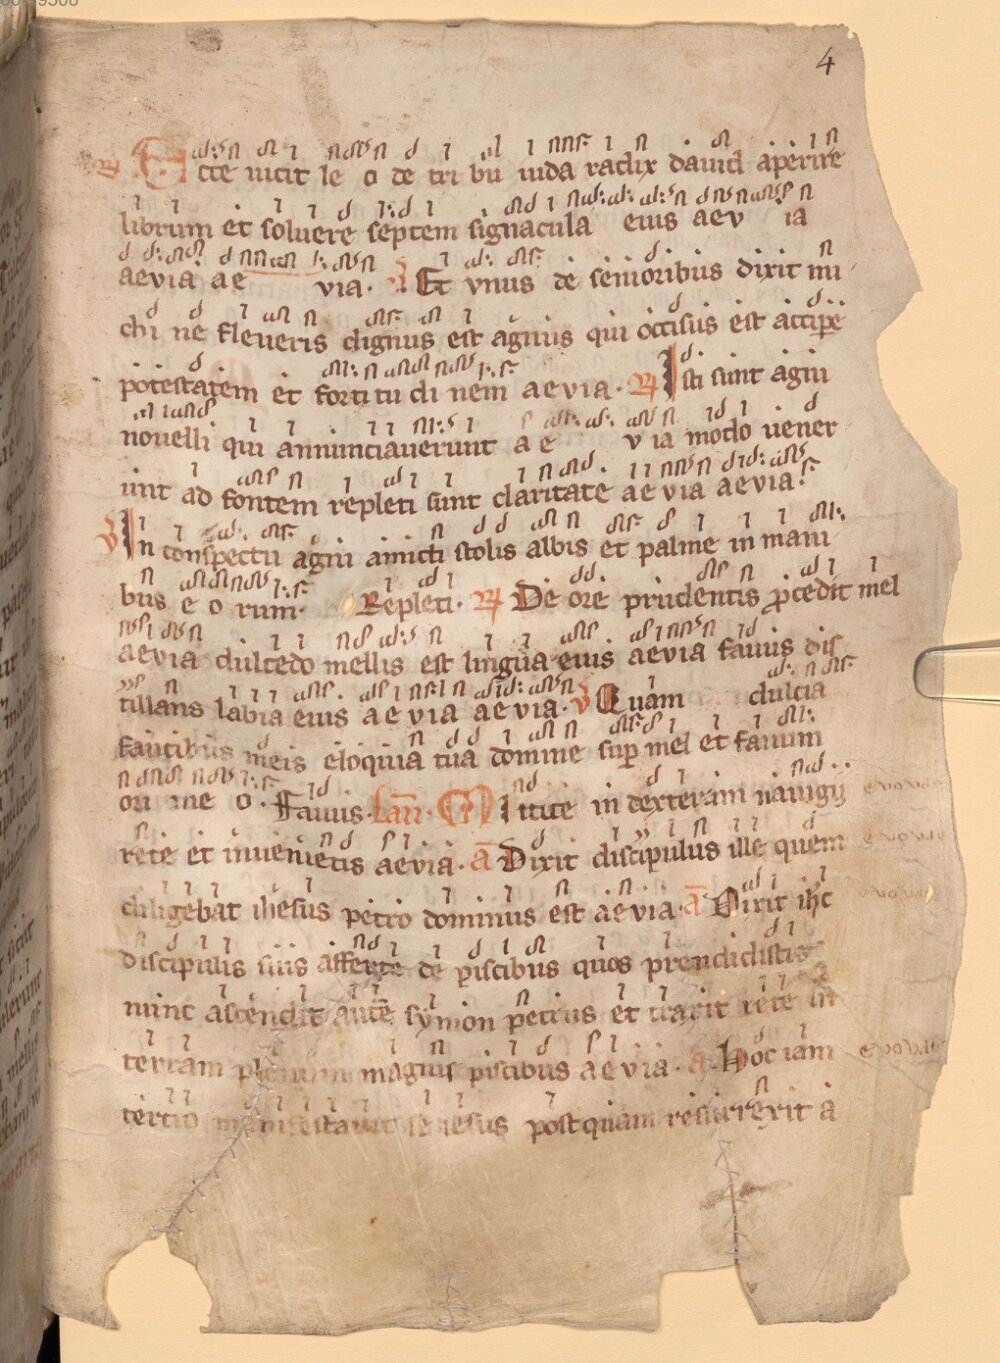 4
R Ecce uicit le o de tri bu iuda radix dauid aperire
librum et soluere septem signacula eius aev ia
aevia ae via. V Et vnus de senioribus dixit mi
chi ne fleueris dignus est agnus qui occisus est accipe
potestatem et forti tu di nem aevia. R Isti sunt agni
nouelli qui annunciauerunt a e v ia modo uener
unt ad fontem repleti sunt claritate aevia aevia.
V In conspectu agni amicti stolis albis et palme in mani
bus e o rum. Repleti. R De ore prudentis pcedit mel
aevia dulcedo mellis est lingua eius aevia fauus dis
tillans labia eius aevia aevia. V Quam dulcia
faucibus meis eloquia tua domine sup mel et fauum
ori me o. Fauus. Laū. Mittite in dexteram nauigij
rete et inuenietis aevia. ā Dixit discipulus ille quem
diligebat ihesus petro dominus est aevia. ā Dixit ihc
discipulis suis afferte de piscibus quos prendidistis
nunc ascendit autē symon petrus et traxit rete in
terram plenum magnis piscibus aevia. a Hoc iam
tercio manifestauit se iesus postquam resurrexit a